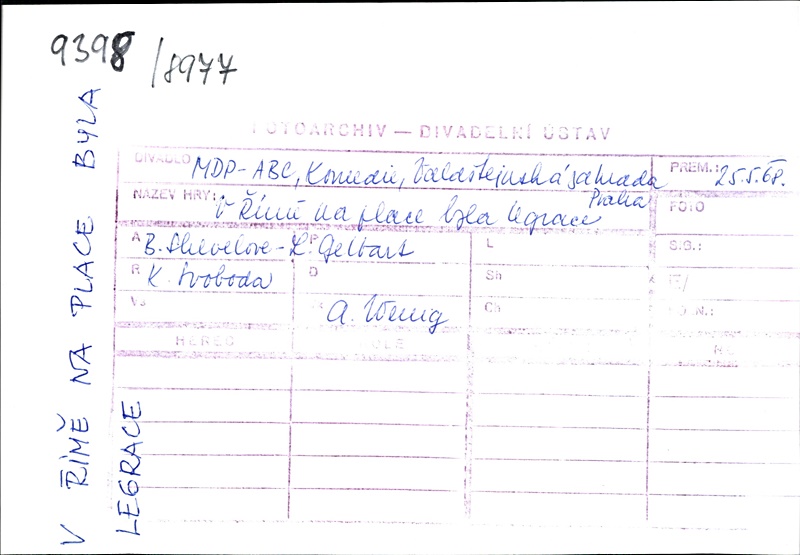 9398 /8977
V ŘÍMĚ NA PLACE BYLA
LEGRACE
FOTOARCHIV — DIVADELNÍ ÚSTAV
DIVADLO MDP-ABC, Komedie, Valdštejnská zahrada Praha
PREM.: 25.5.68.
NÁZEV HRY: V Římě na place byla legrace
FOTO
A B. Shevelove - L. Gelbart
P
L
S.G.:
R K. Svoboda
D
Sh
Vs
A. Wenig
Ch
HEREC